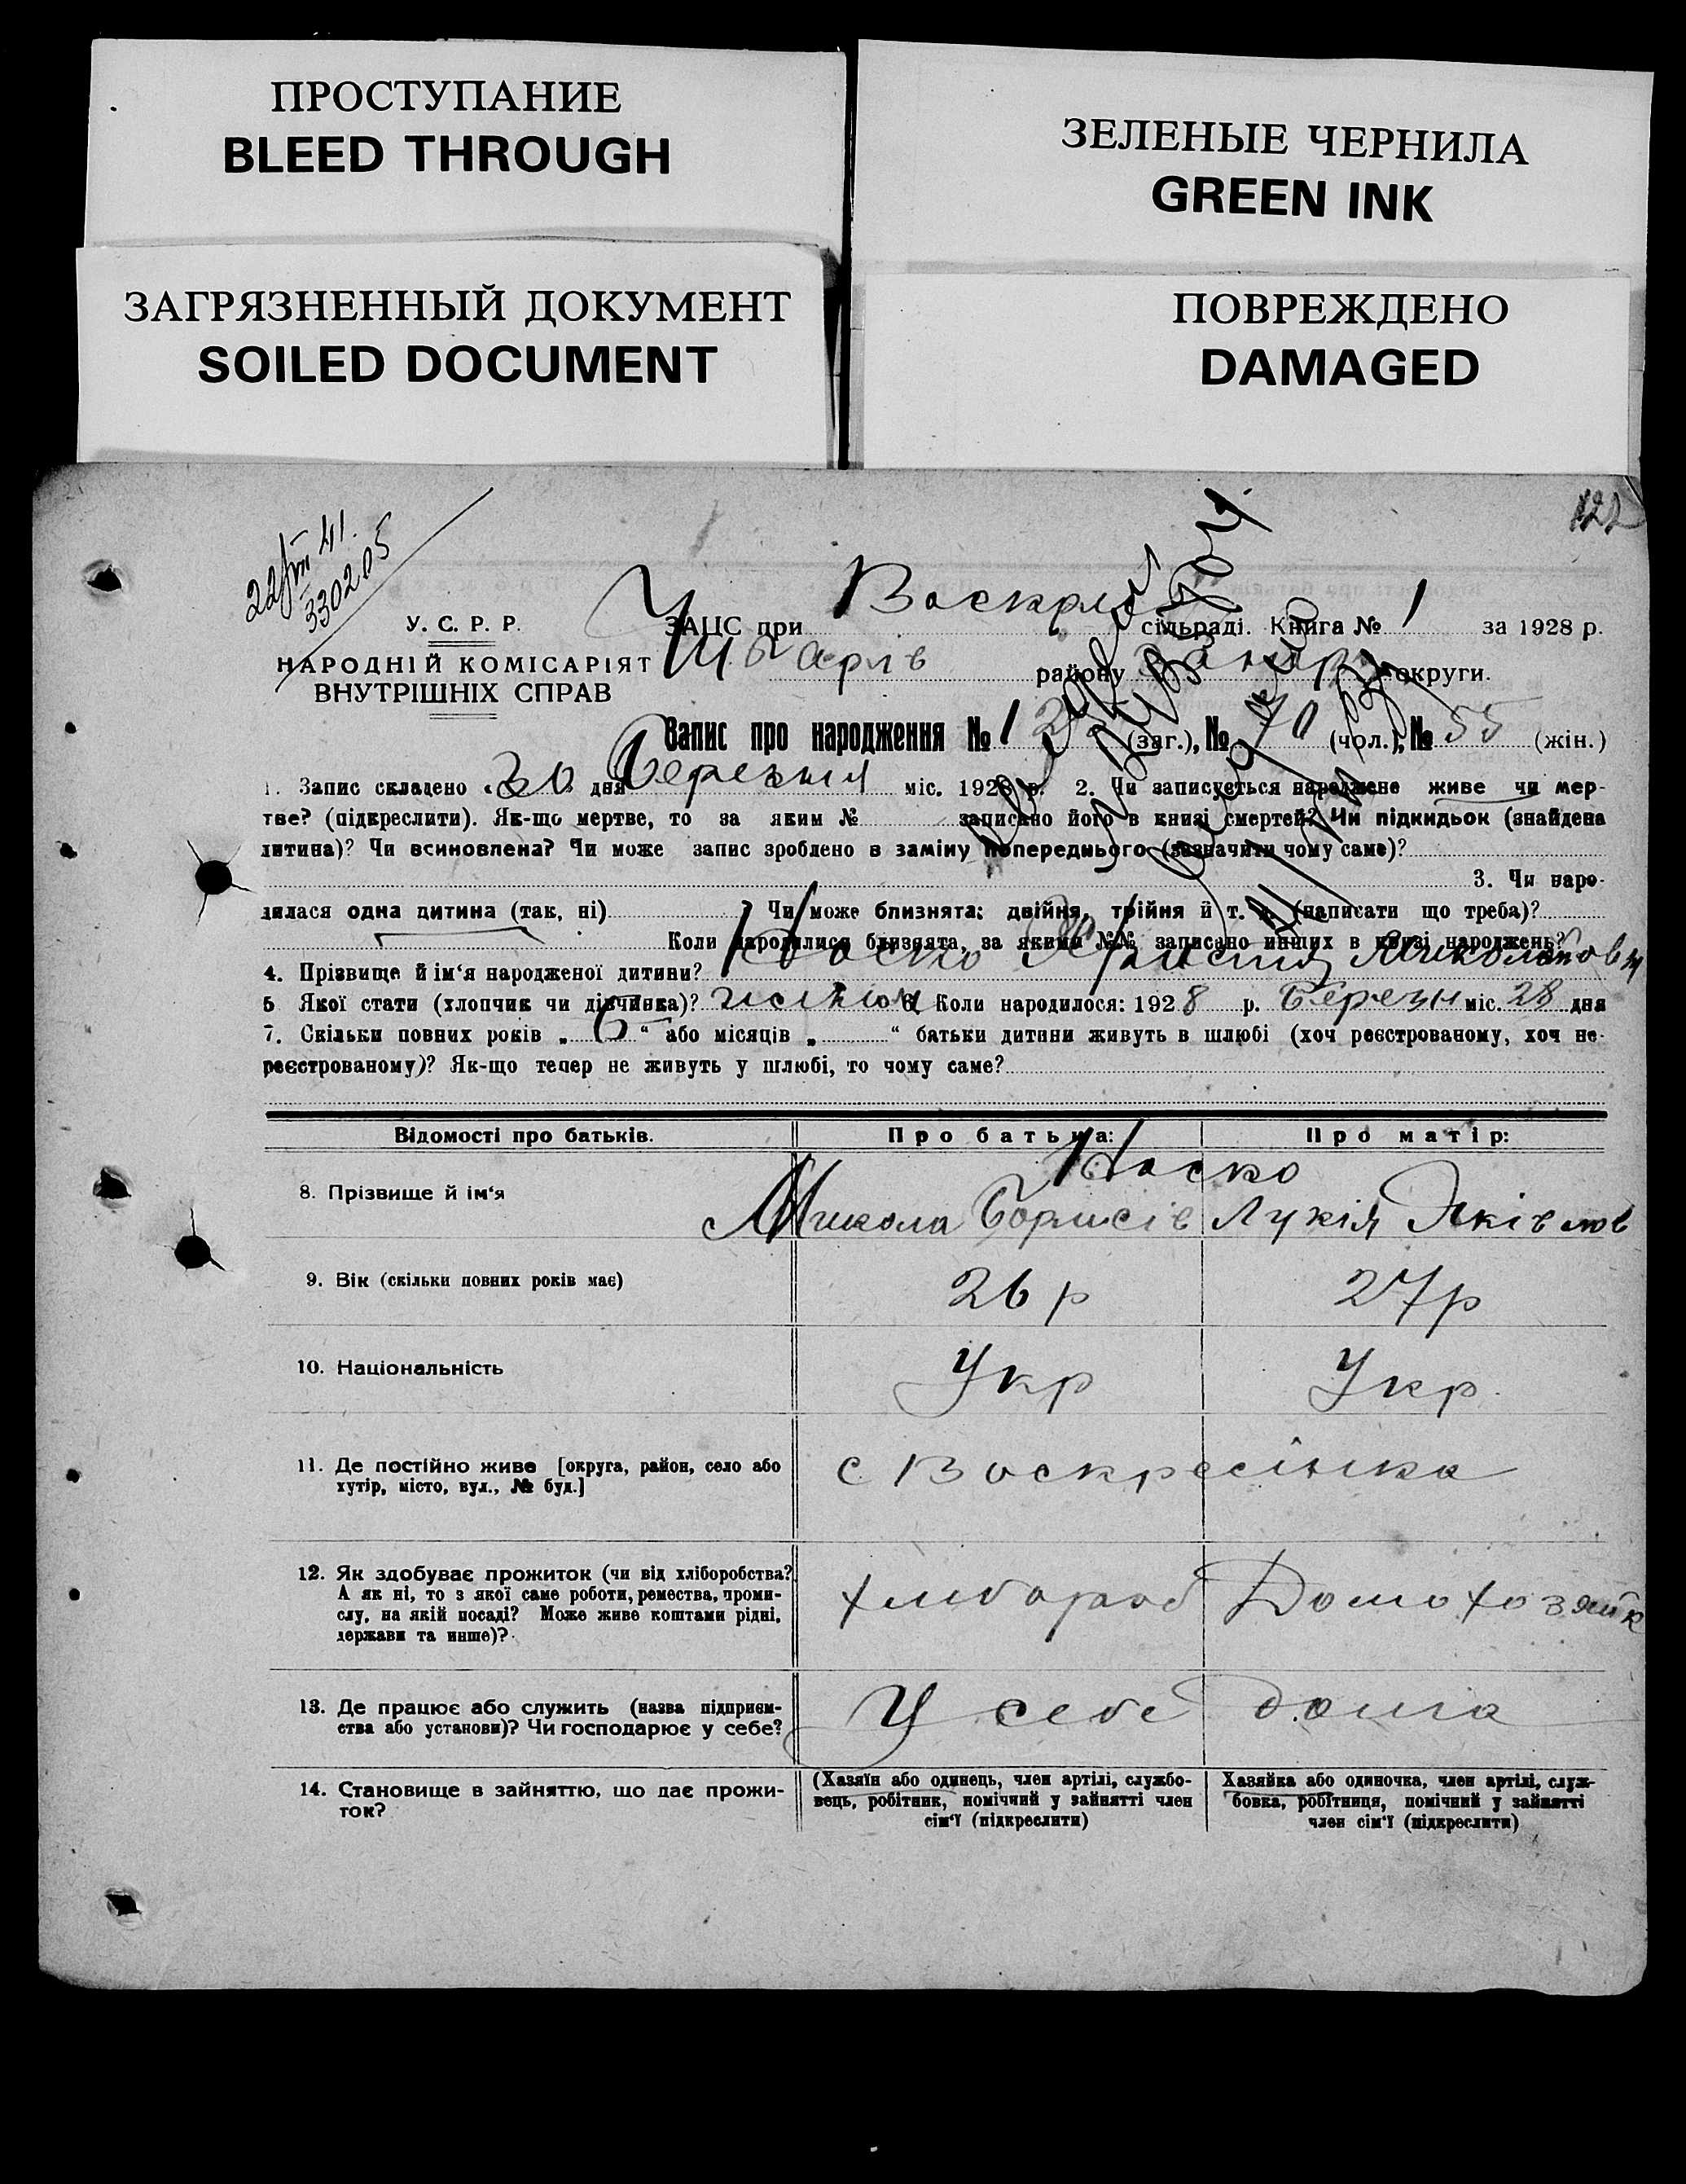 ПРОСТУПАНИЕ
BLEED THROUGH
ЗЕЛЕНЫЕ ЧЕРНИЛА
GREEN INK
ЗАГРЯЗНЕННЫЙ ДОКУМЕНТ
SOILED DOCUMENT
ПОВРЕЖДЕНО
DAMAGED
122
22/VII 41.
330205
У. С. Р. Р.
НАРОДНІЙ КОМІСАРІЯТ
ВНУТРІШНІХ СПРАВ
ЗАЦС при Воскрес сільраді. Книга № 1 за 1928 р.
району округи.
Запис про народження № (заг.), № 70 (чол.), № 55 (жін.)
1. Запис складено „30" дня Березня міс. 1928 р. 2. Чи записується народжене живе чи мер-
тве? (підкреслити). Як-що мертве, то за яким № записано його в книзі смертей? Чи підкидьок (знайдена
дитина)? Чи всиновлена? Чи може запис зроблено в заміну попереднього (зазначити чому саме)?
3. Чи наро-
дилася одна дитина (так, ні) ? Чи може близнята: двійня, трійня й т. д. (написати що треба)?
Коли народилися близнята, за якими №№ записано инших в книзі народжень?
4. Прізвище й ім'я народженої дитини?
5 Якої стати (хлопчик чи дівчинка)? 6. Коли народилося: 1928 р. Березн міс. 28 дня
7. Скільки повних років „6" або місяців „ " батьки дитини живуть в шлюбі (хоч реєстрованому, хоч не-
реєстрованому)? Як-що тепер не живуть у шлюбі, то чому саме?
Відомості про батьків. Про батька: Про матір:
8. Прізвище й ім'я
Микола Борисів Лукія Яківлов
9. Вік (скільки повних років має) 26 р 27 р
10. Національність Укр Укр.
11. Де постійно живе [округа, район, село або
хутір, місто, вул., № буд.]
с Воскресінка
12. Як здобуває прожиток (чи від хліборобства?
А як ні, то з якої саме роботи, ремества, проми-
слу, на якій посаді? Може живе коштами рідні,
держави та инше)?
хлибороб Домохозяйк
13. Де працює або служить (назва підприєм-
ства або установи)? Чи господарює у себе?
У себе дома
14. Становище в зайняттю, що дає прожи-
ток?
(Хазяїн або одинець, член артілі, службо-
вець, робітник, помічний у зайнятті член
сім'ї (підкреслити)
Хазяйка або одиночка, член артілі, служ-
бовка, робітниця, помічний у зайнятті
член сім'ї (підкреслити)